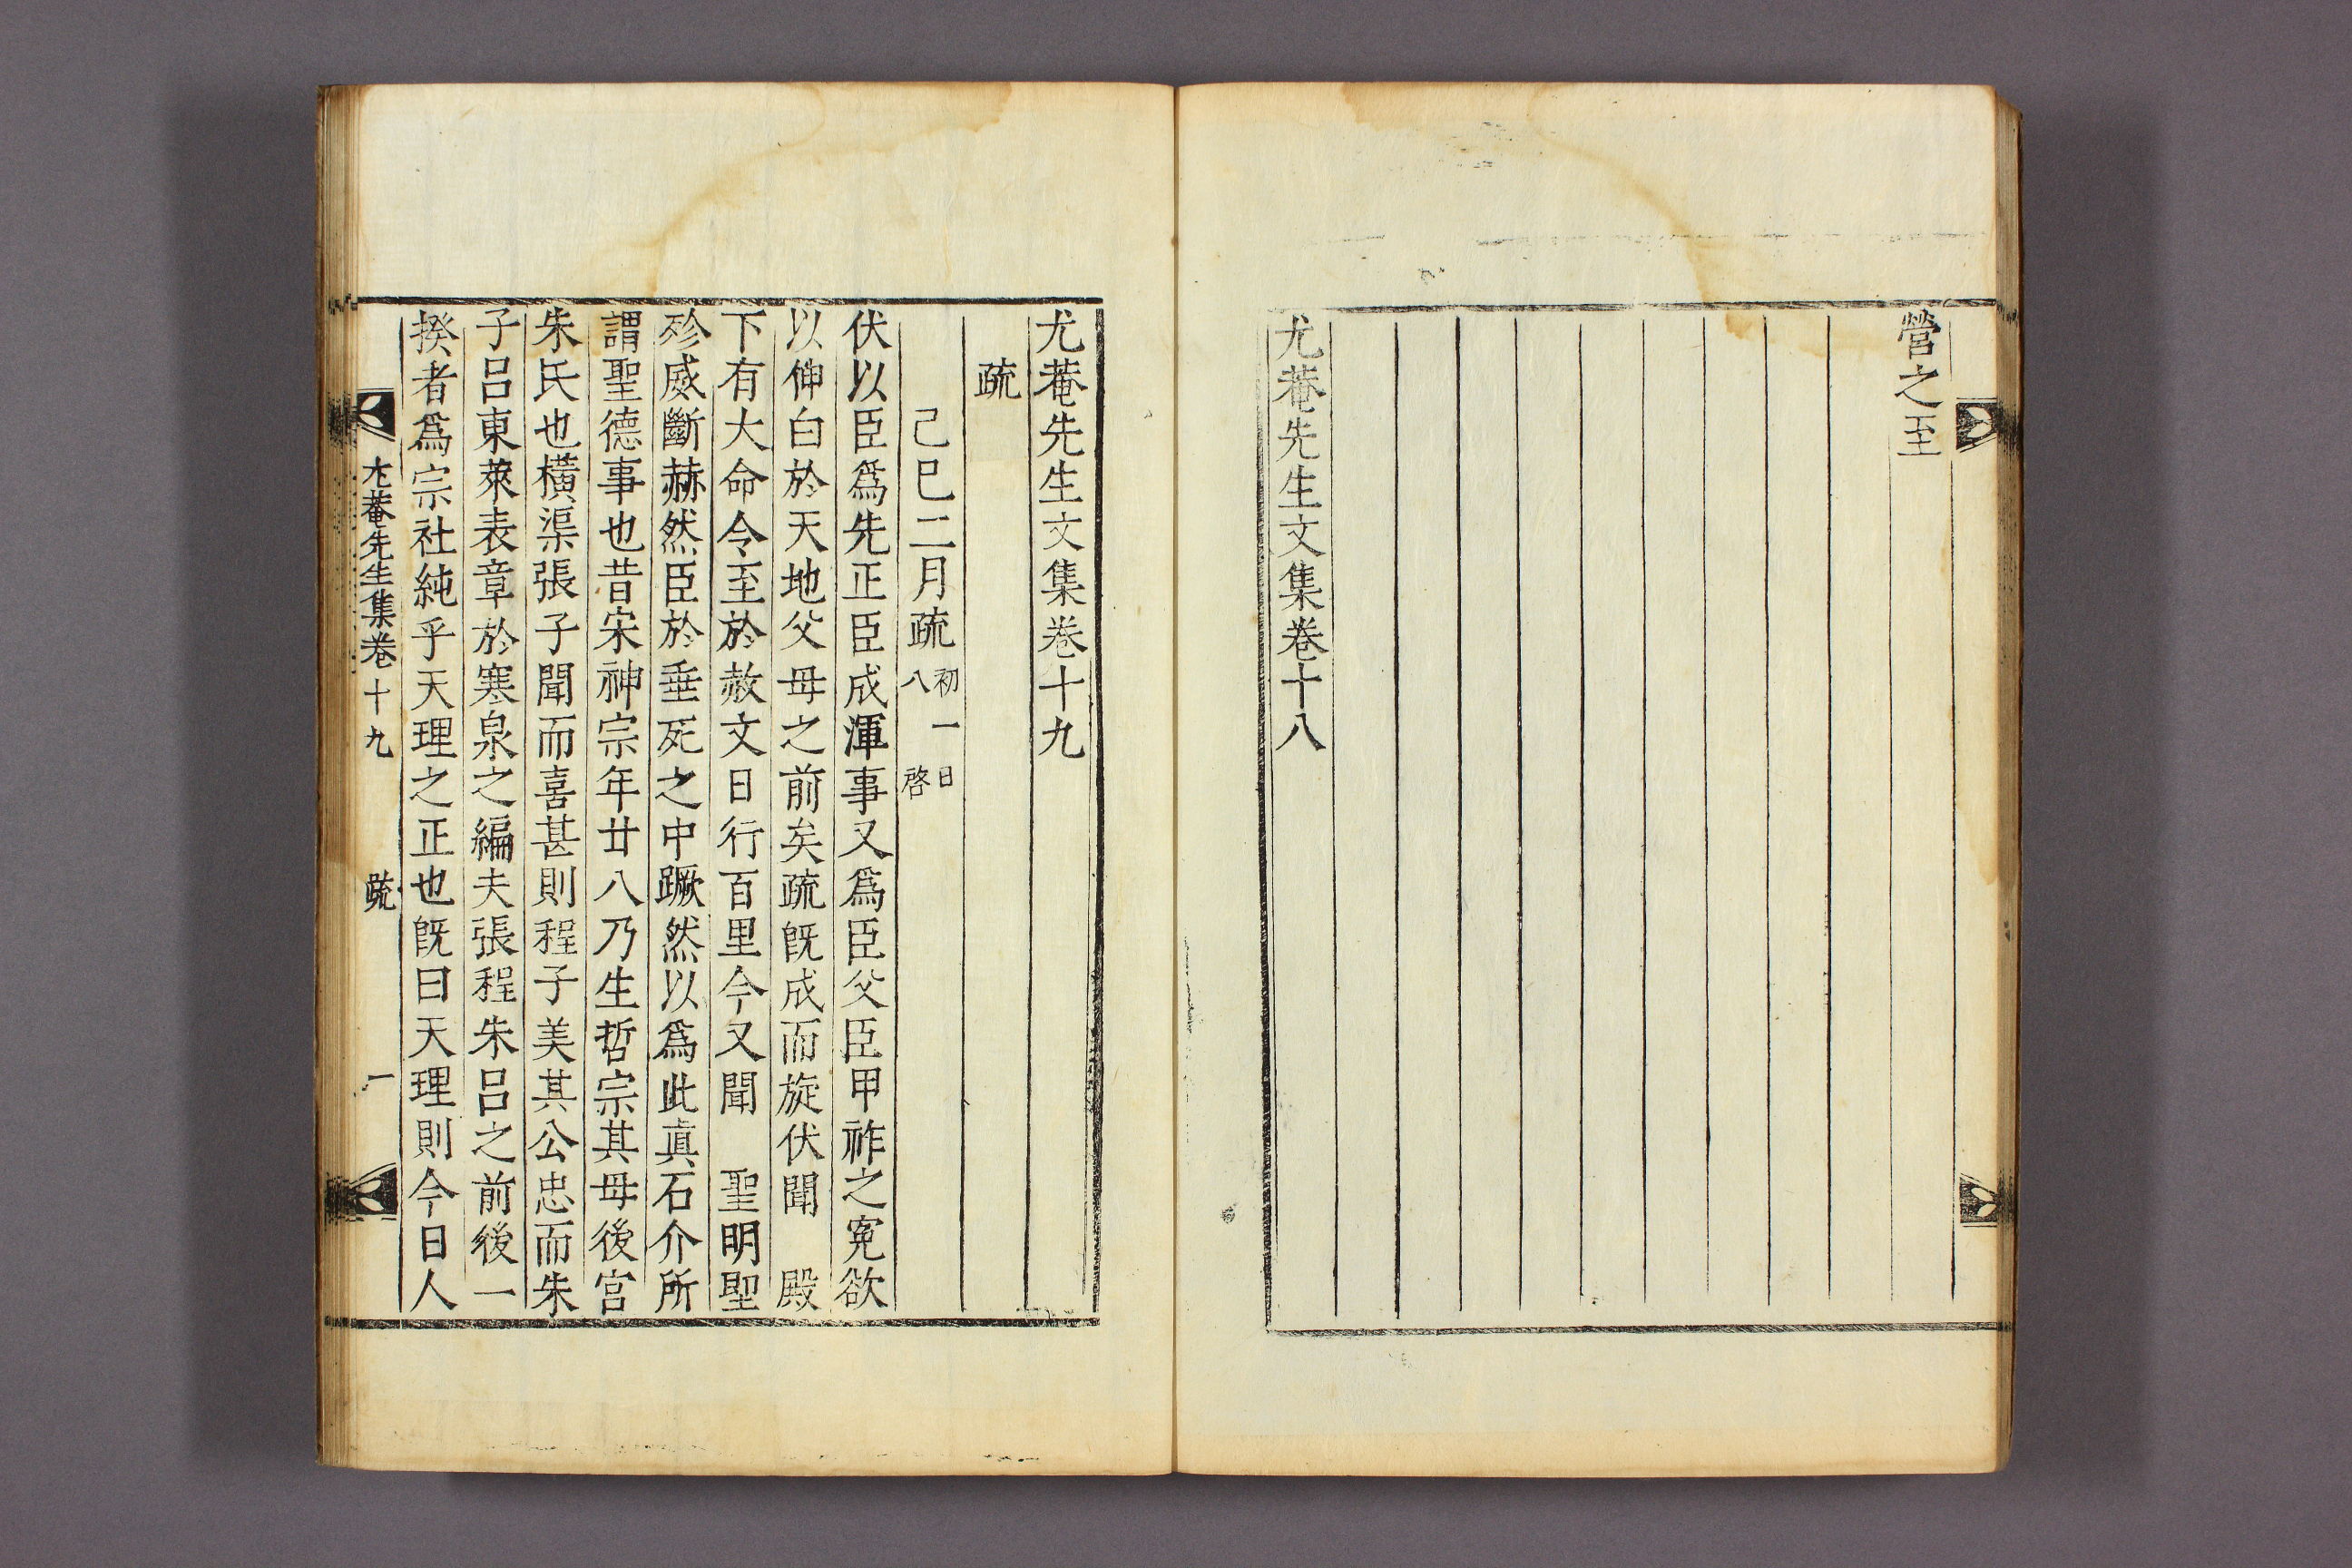 營之至
尤菴先生文集卷十八
尤菴先生文集卷十九
疏
己巳二月疏 初一日 八啓
伏以臣爲先正臣成渾事又爲臣父臣甲祚之寃欲
以伸白於天地父母之前矣疏旣成而旋伏聞 殿
下有大命令至於赦文日行百里今又聞 聖明聖
殄威斷赫然臣於垂死之中蹶然以爲此眞石介所
謂聖德事也昔宋神宗年廿八乃生哲宗其母後宮
朱氏也橫渠張子聞而喜甚則程子美其公忠而朱
子呂東萊表章於寒泉之編夫張程朱呂之前後一
揆者爲宗社純乎天理之正也旣曰天理則今日人
尤菴先生集卷十九 疏 一